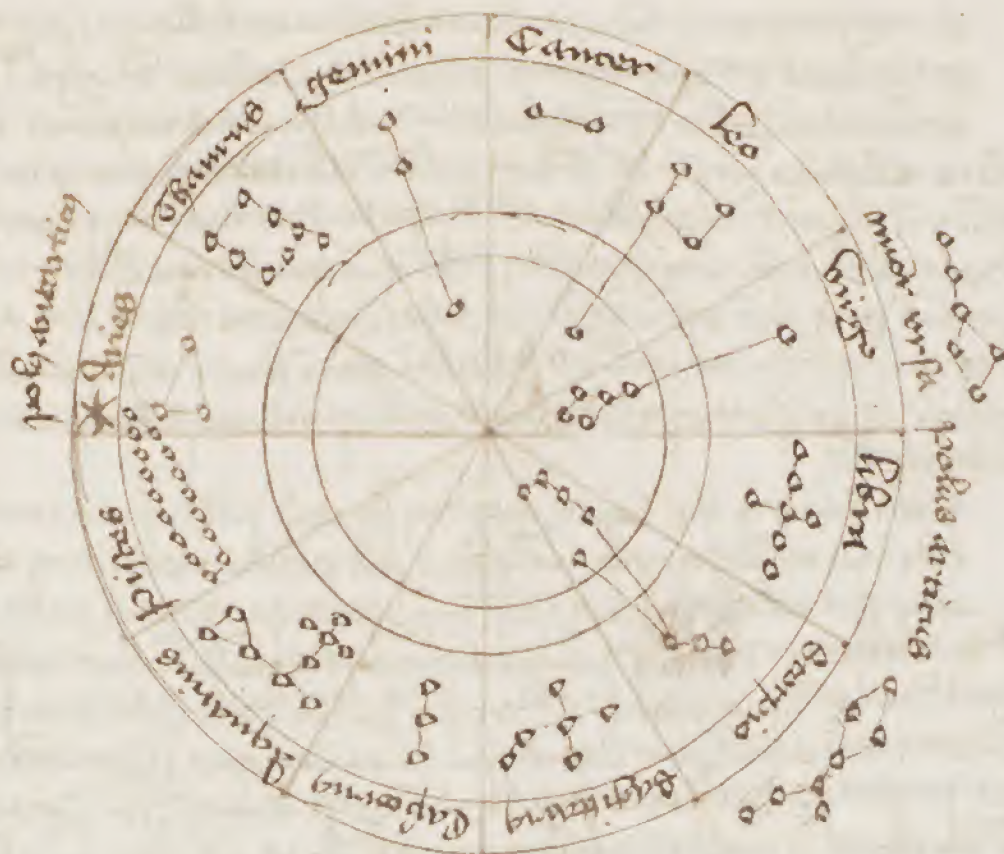 Cancer
Leo
Virgo
libra
Scorpio
Sagittarius
Capicornus
Aquarius
pisces
Aries
Thaurus
gemini
minor ursa
polus articus